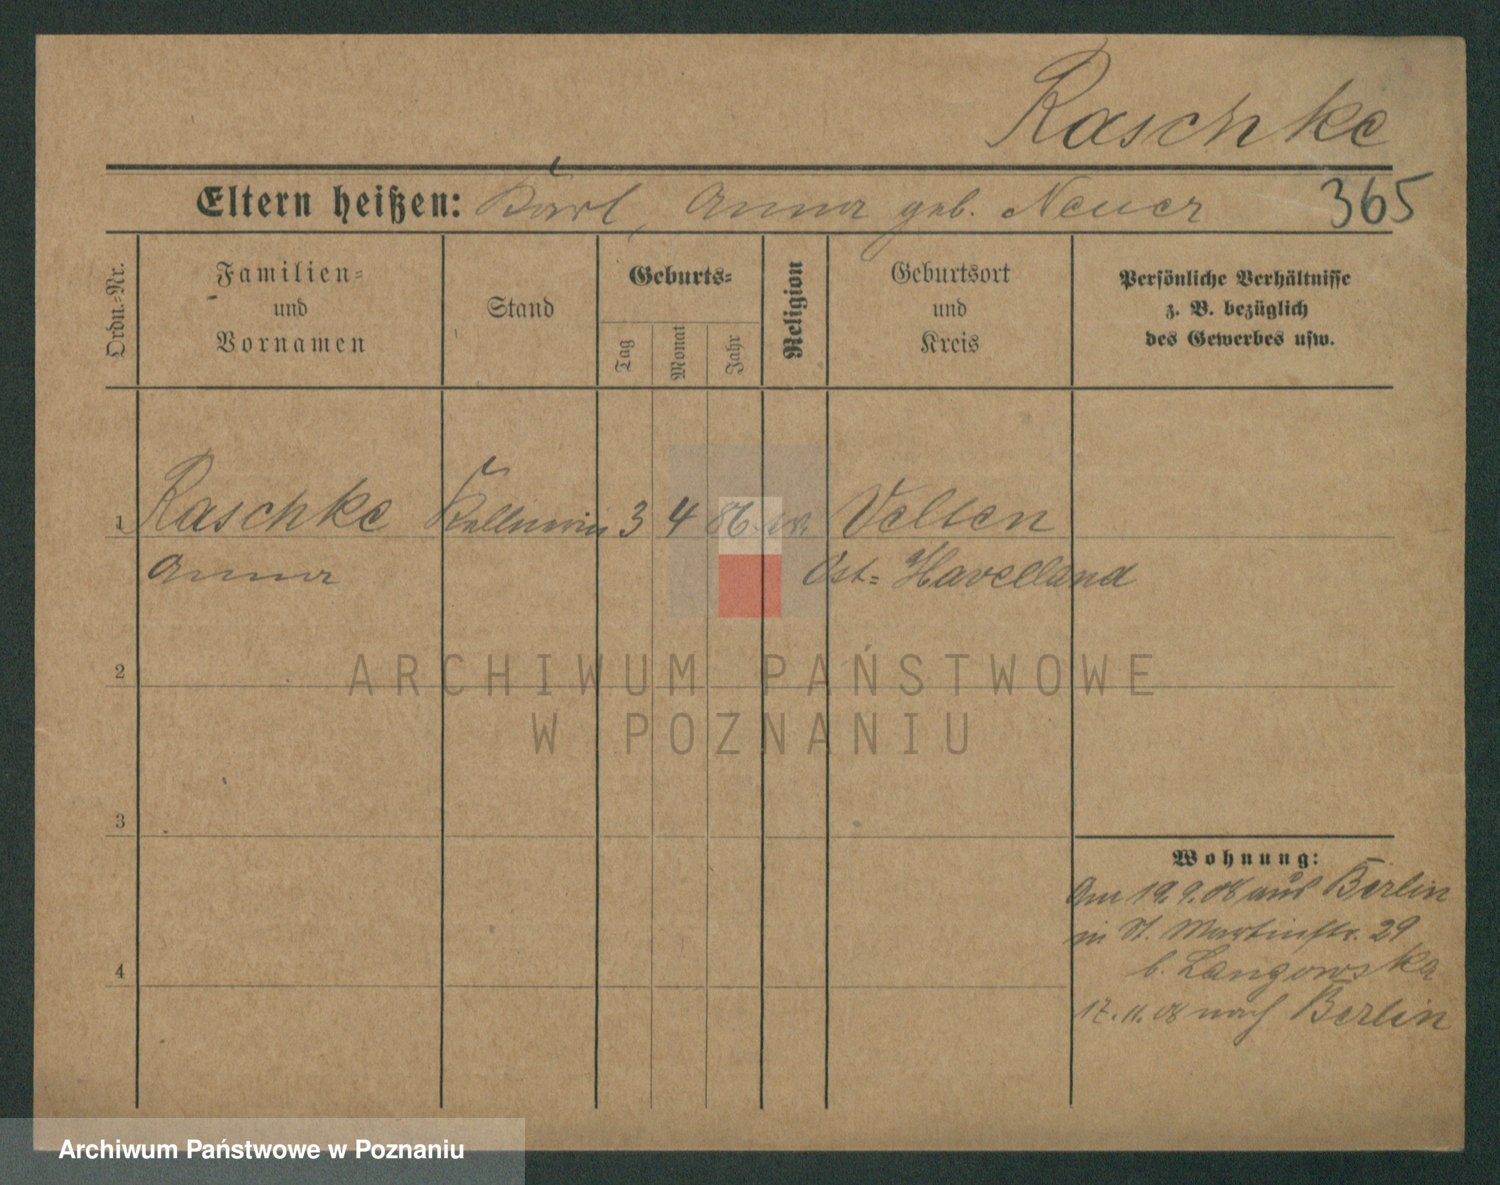 Raschke
Eltern heißen: Karl, Anna geb. Neuer
365
Ordn.-Nr.
Familien-
und
Vornamen
Stand
Geburts-
Tag
Monat
Jahr
Religion
Geburtsort
und
Kreis
Persönliche Verhältnisse
z. B. bezüglich
des Gewerbes usw.
1 Raschke Kellnerin 3 4 86 ev. Velten
Anna Ost-Havelland
2
ARCHIWUM PAŃSTWOWE
W POZNANIU
3
Wohnung:
Am 19.9.08 aus Berlin
in St. Martinstr. 29
b. Langowska
4
17.11.08 nach Berlin
Archiwum Państwowe w Poznaniu